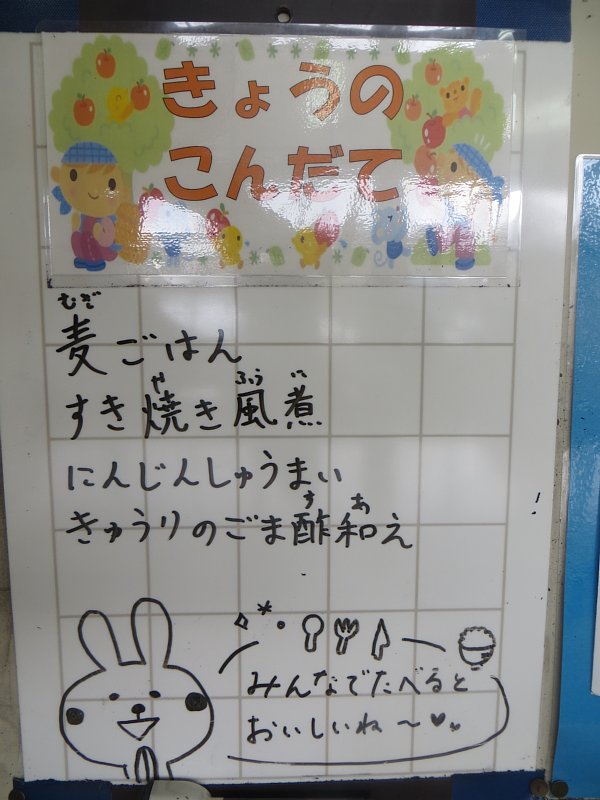 きょうの
こんだて
むぎ
麦ごはん
や ふう に
すき焼き風煮
にんじんしゅうまい
す あ
きゅうりのごま酢和え
みんなでたべると
おいしいね～